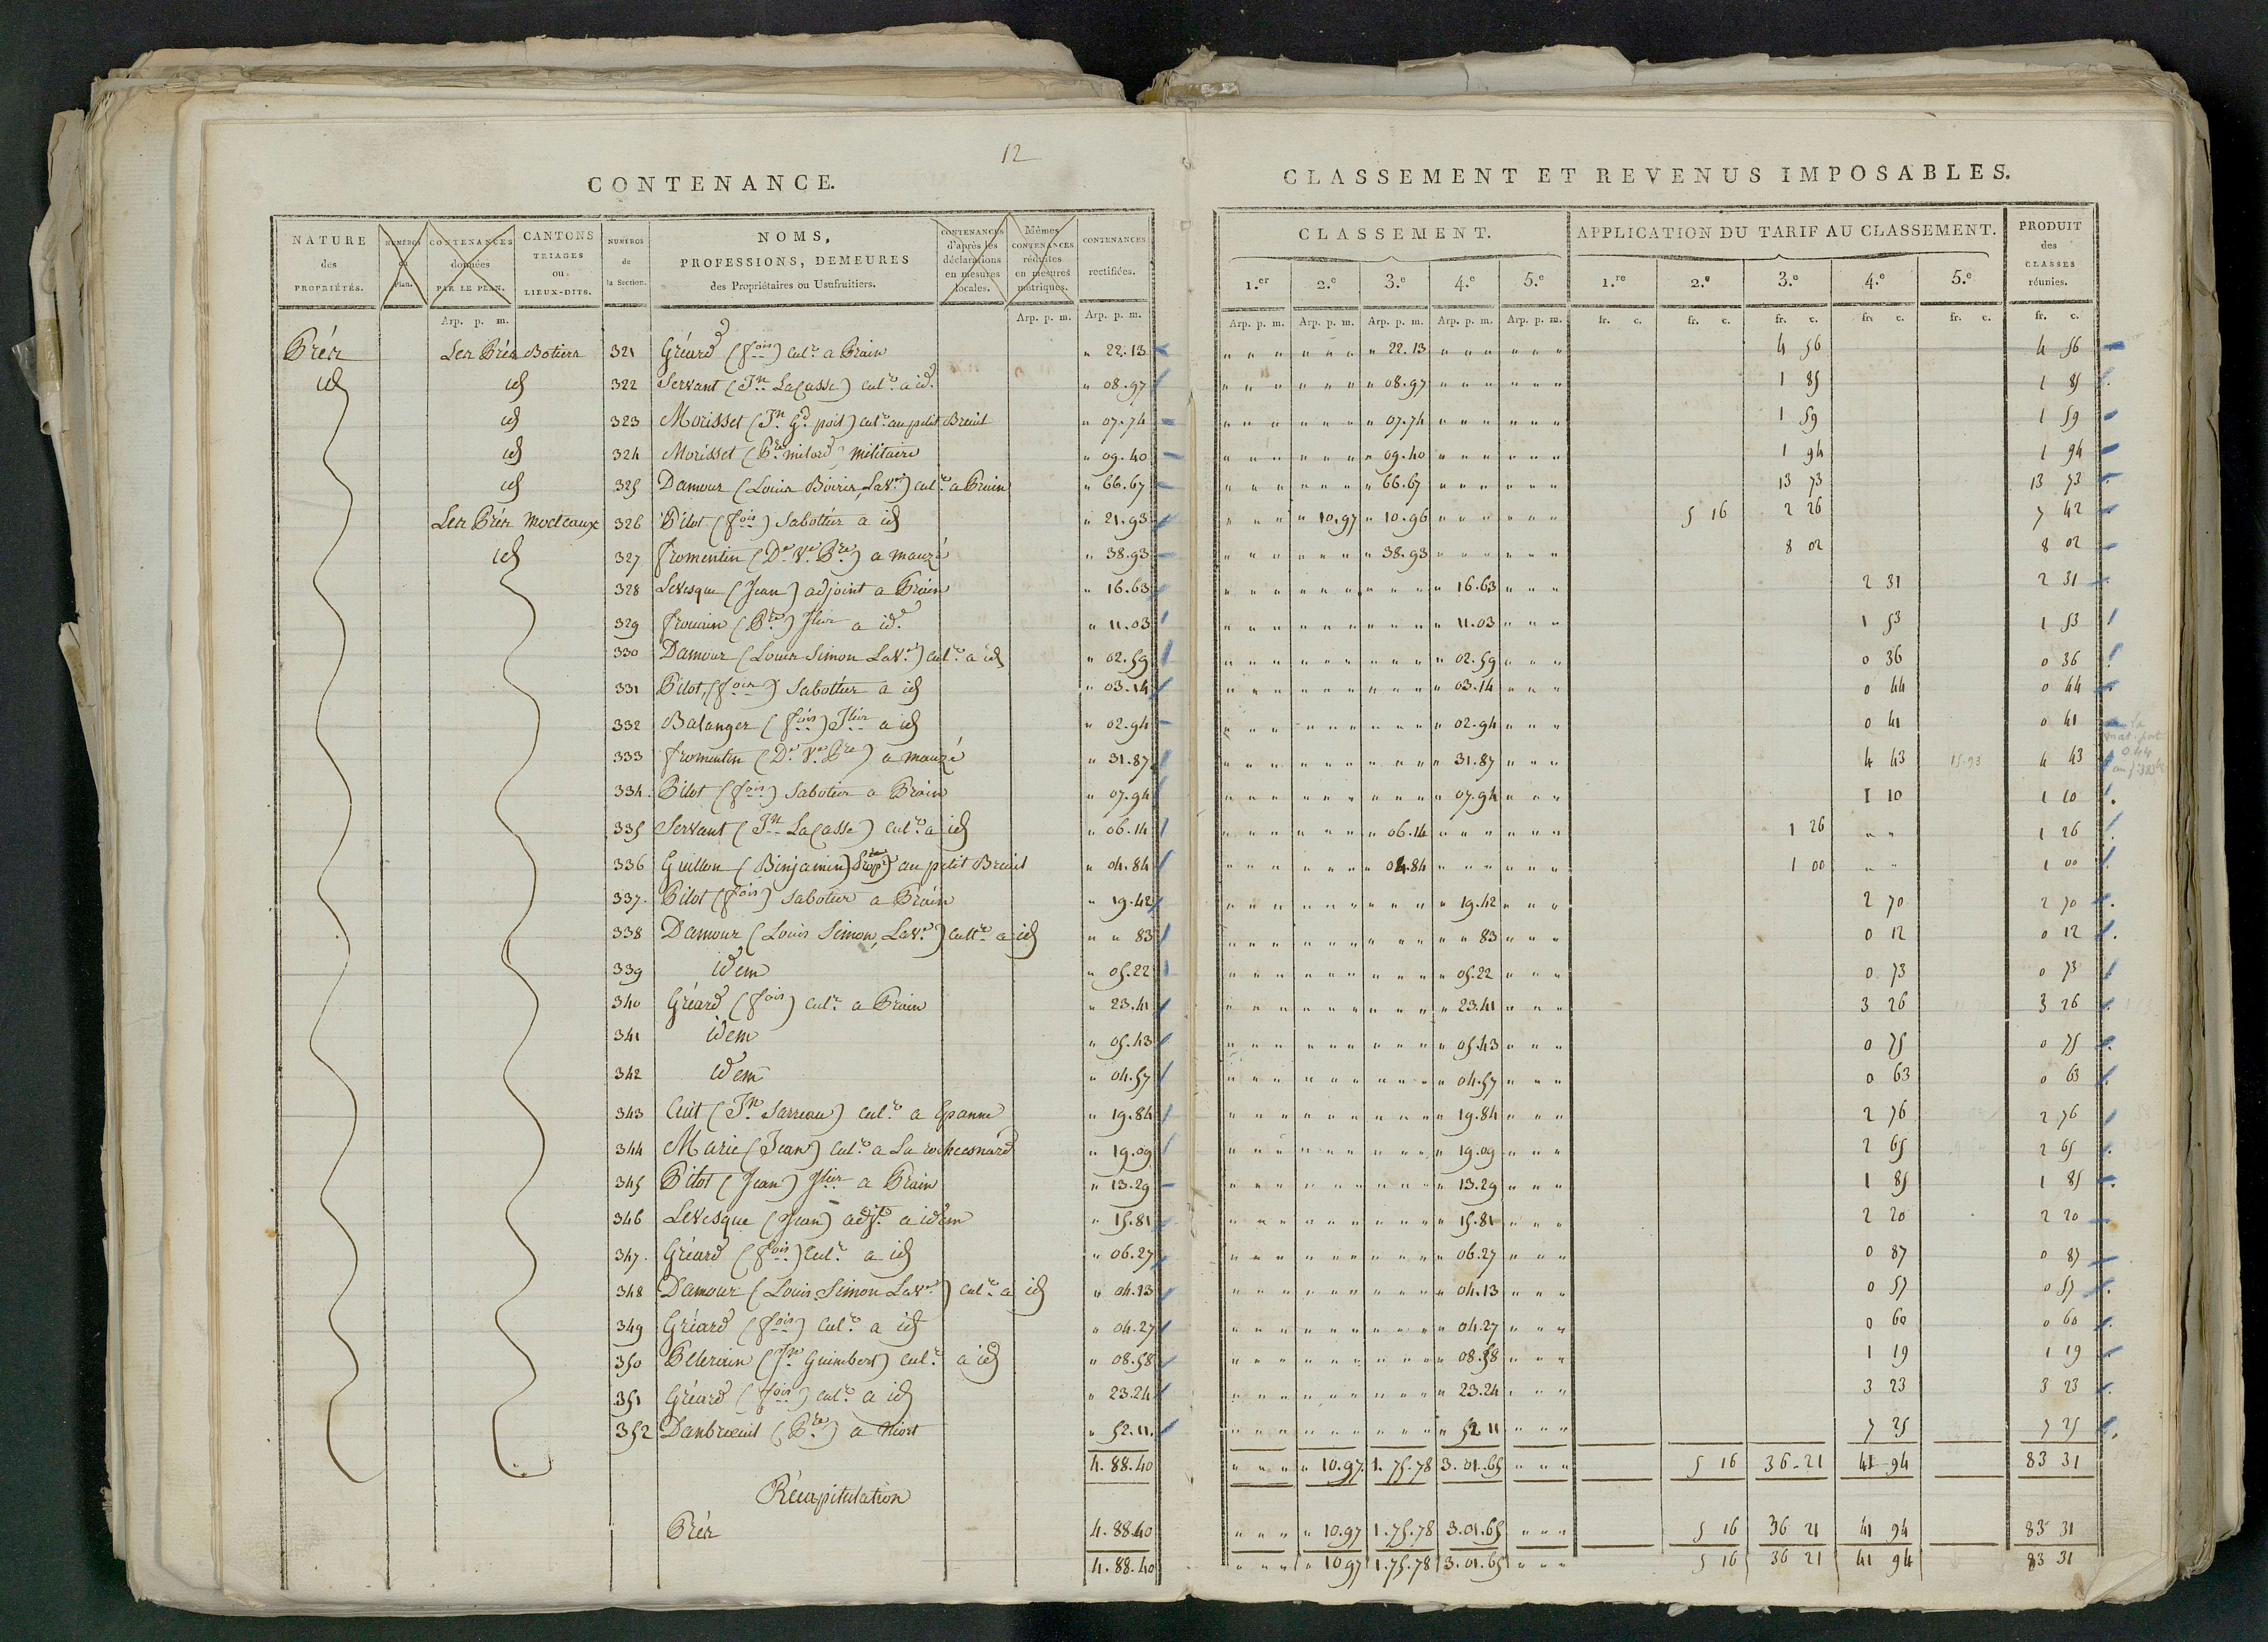 12
CONTENANCE.
CLASSEMENT ET REVENUS IMPOSABLES.
NATURE des PROPRIÉTÉS.
NUMÉROS du Plan.
CONTENANCES données PAR LE PLAN.
CANTONS TRIAGES ou LIEUX-DITS.
NUMÉROS de la Section.
NOMS, PROFESSIONS, DEMEURES des Propriétaires ou Usufruitiers.
CONTENANCES d'après les déclarations en mesures locales.
Mêmes CONTENANCES réduites en mesures métriques.
CONTENANCES rectifiées.
CLASSEMENT.
1.er 2.e 3.e 4.e 5.e
APPLICATION DU TARIF AU CLASSEMENT.
1.re 2.e 3.e 4.e 5.e
PRODUIT des CLASSES réunies.
Arp. p. m. Arp. p. m. Arp. p. m. Arp. p. m. Arp. p. m. Arp. p. m. Arp. p. m. Arp. p. m. fr. c. fr. c. fr. c. fr. c. fr. c. fr. c.
Prés Les Prés Botiers 321 Gréard (fois) Culr a Prain " 22.13 " 22.13 4 56 4 56
id id 322 Servant (Jn LaCasse) culr a id. " 08.97 " 08.97 1 85 1 85
id 323 Morisset (Jn Gd poit) culr au petit Breuil " 07.74 " 07.74 1 59 1 59
id 324 Morisset (Pre milord) militaire " 09.40 " 09.40 1 94 1 94
id 325 Damour (Louis Boiris, LaVe) culr a Prain " 66.67 " 66.67 13 73 13 73
Les Prés Mocteaux 326 Pilot (fois) Sabottier a id " 21.93 " 10.97 " 10.96 5 16 2 26 7 42
id 327 fromentin (De Ve Pre) a mauzé " 38.93 " 38.93 8 02 8 02
328 Levesque (Jean) adjoint a Prain " 16.63 " 16.63 2 31 2 31
329 frouin (Pre) Jlier a id. " 11.03 " 11.03 1 53 1 53
330 Damour (Louis Simon LaVe) culr a id " 02.59 " 02.59 0 36 0 36
331 Pilot, (fois) Sabottier a id " 03.14 " 03.14 0 44 0 44
332 Balanger (fois) Jlier a id " 02.94 " 02.94 0 41 0 41
333 fromentin (De Ve Pre) a mauzé " 31.87 " 31.87 4 43 15.93 4 43
334. Pilot (fois) Sabotier a Prain " 07.94 " 07.94 1 10 1 10
335 Servant (Jn LaCasse) culr a id " 06.14 " 06.14 1 26 " " 1 26
336 Guillon (Binjamin) Propre au petit Breuil " 04.84 " 04.84 1 00 " " 1 00
337. Pilot (fois) Sabotier a Prain " 19.42 " 19.42 2 70 2 70
338 Damour (Louis Simon, LaVe) cultr a id " " 83 " " 83 0 12 0 12
339 idem " 05.22 " 05.22 0 73 0 73
340 Gréard (fois) culr a Prain " 23.41 " 23.41 3 26 3 26
341 idem " 05.43 " 05.43 0 75 0 75
342 idem " 04.57 " 04.57 0 63 0 63
343 Cuit (Jn Sarreau) culr a Epanne " 19.84 " 19.84 2 76 2 76
344 Marie (Jean) culr a La rochesnard " 19.09 " 19.09 2 65 2 65
345 Pilot (Jean) Jlier a Prain " 13.29 " 13.29 1 85 1 85
346 Levesque (Jean) adjt a idem " 15.81 " 15.81 2 20 2 20
347. Gréard (fois) Culr a id " 06.27 " 06.27 0 87 0 87
348 Damour (Louis Simon LaVe) culr a id " 04.13 " 04.13 0 57 0 57
349 Gréard (fois) Culr a id " 04.27 " 04.27 0 60 0 60
350 Pellerain (Jn Guimbert) culr a id " 08.58 " 08.58 1 19 1 19
351 Gréard (fois) culr a id " 23.24 " 23.24 3 23 3 23
352 Danbreuil (Pre) a Niort " 52.11. " 52 11 7 25 7 25
4.88.40 " 10.97. 1.75.78 3.01.65 5 16 36-21 41-94 83 31
Récapitulation
Prés 4.88.40 " 10.97 1.75.78 3.01.65 5 16 36 21 41 94 83 31
4.88.40 " 10.97 1.75.78 3.01.65 5 16 36 21 41 94 83 31